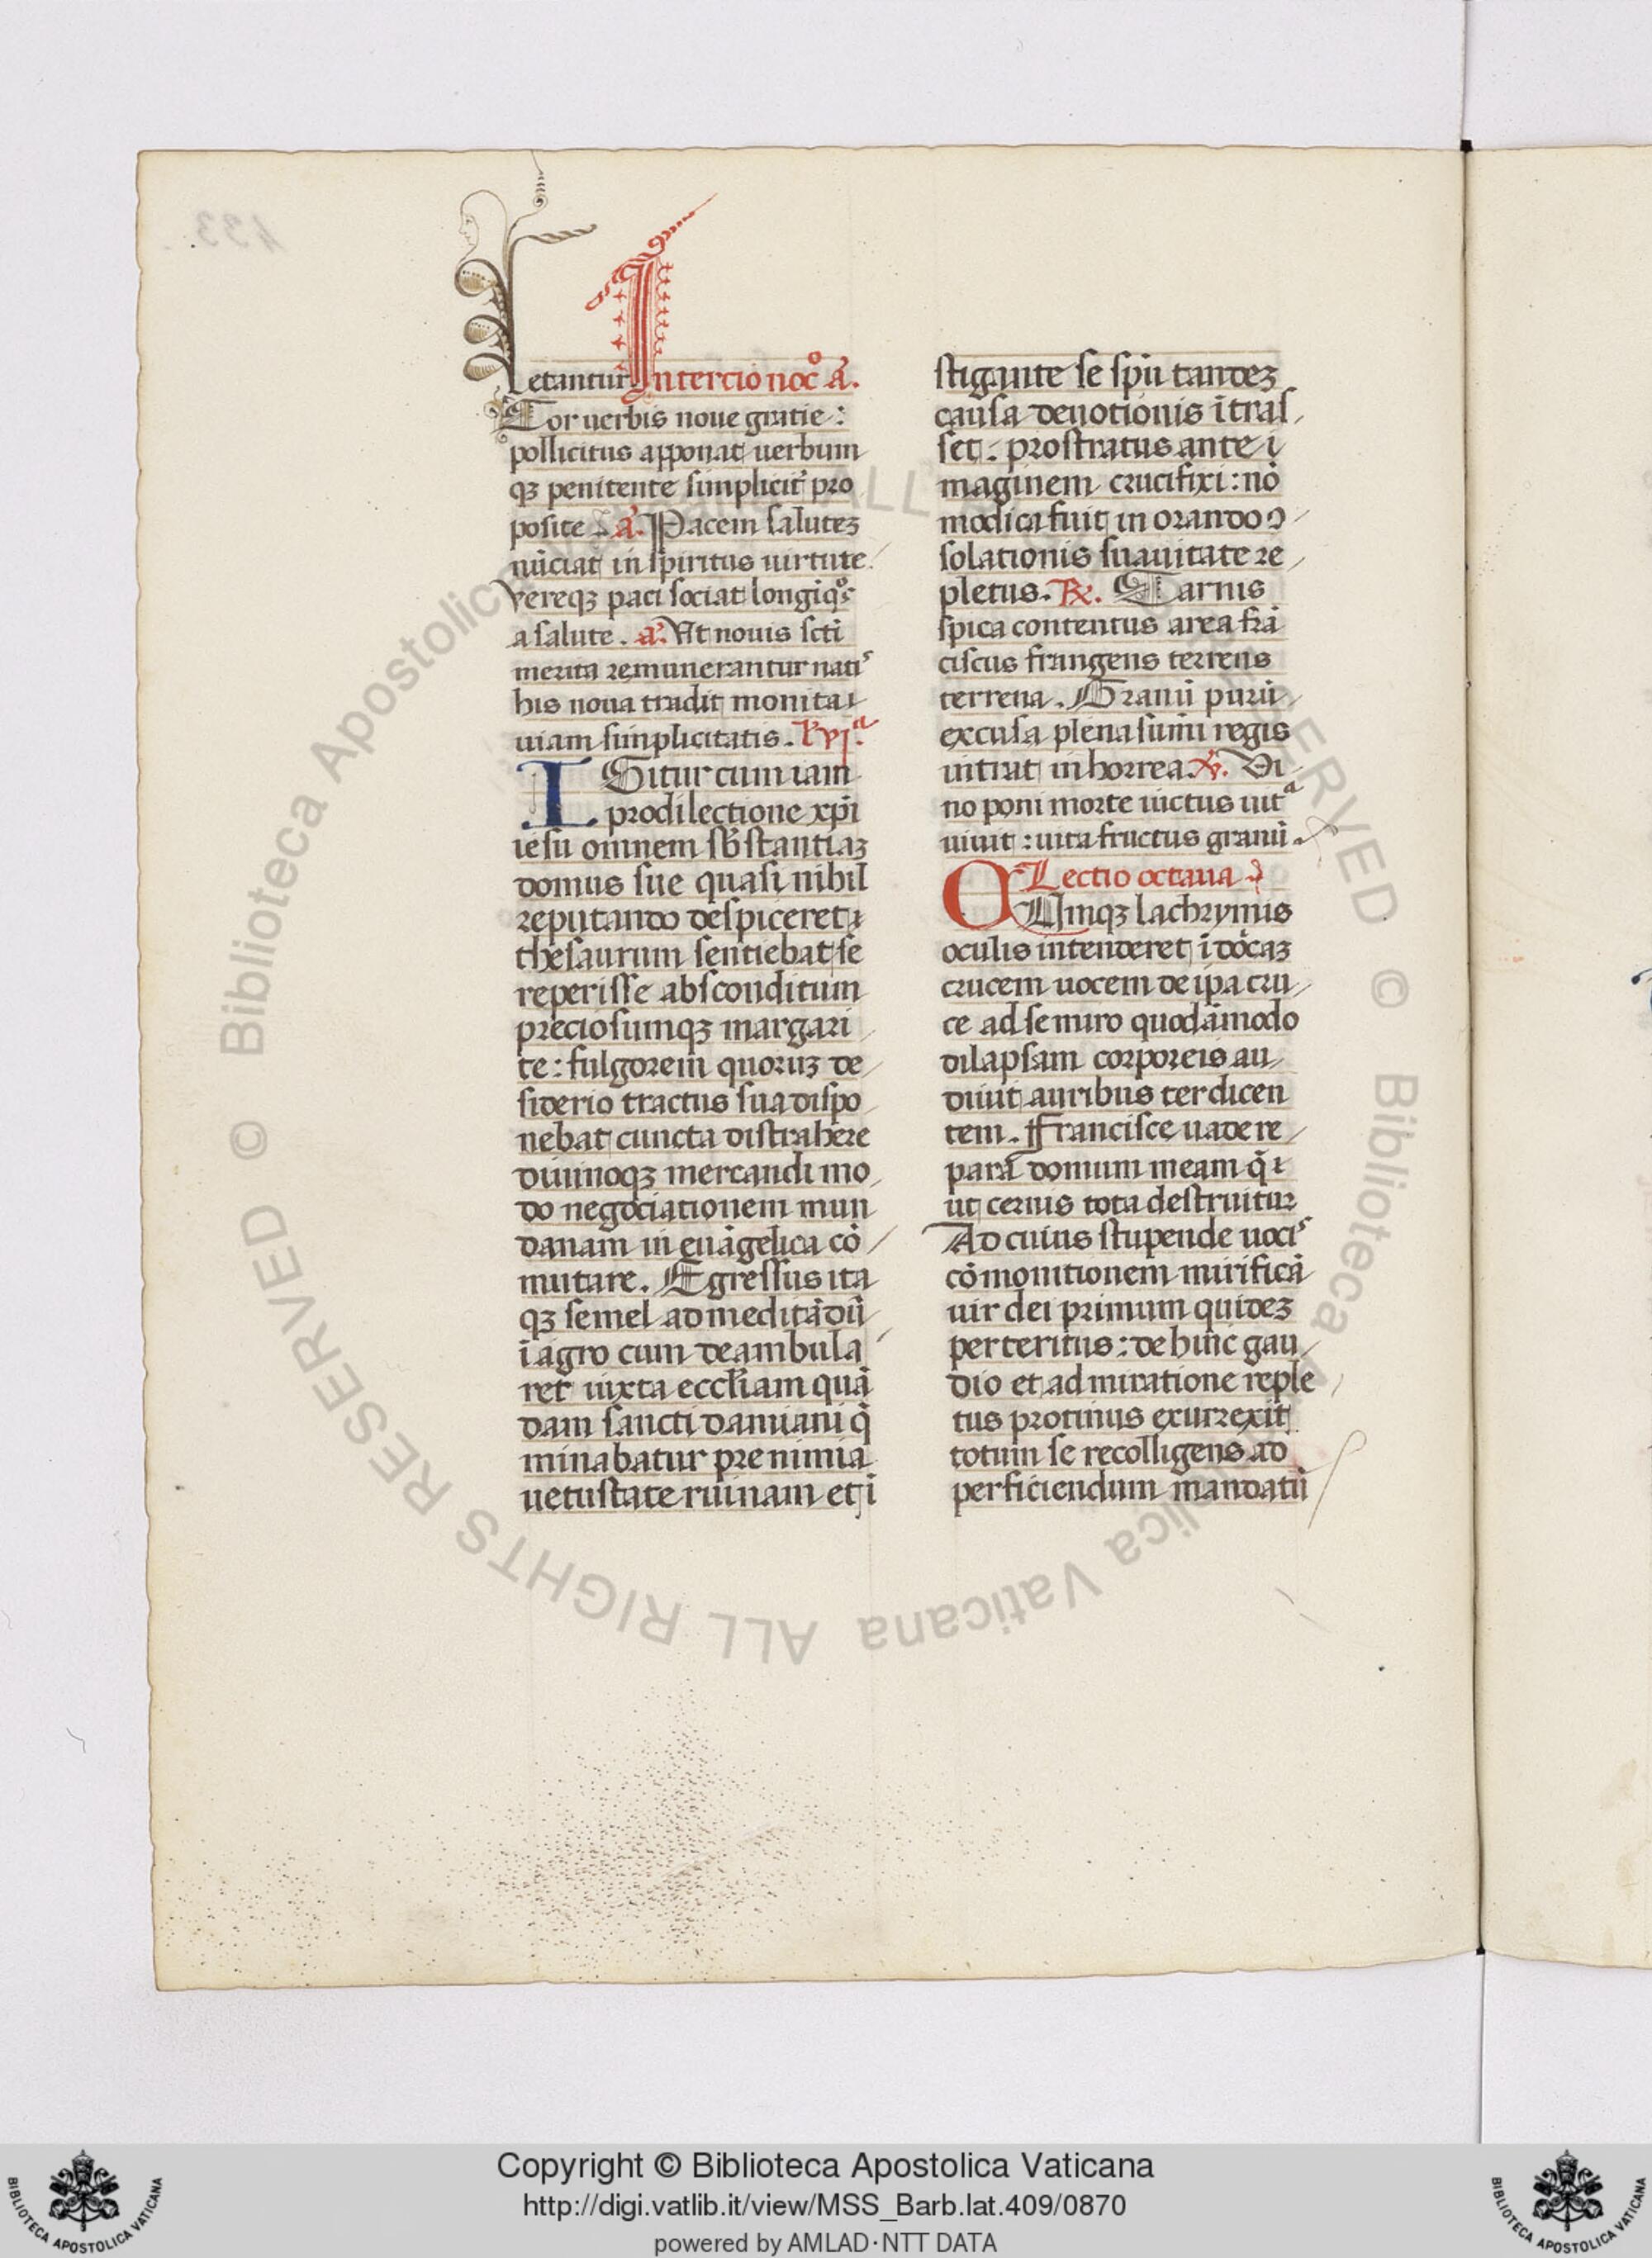 letantur. In tercio noc̊ a᷑.
Cor uerbis noue gratie:
pollicitus apponat uerbum
qꝫ penitente simplicit᷑ pro
posite. a᷑. Pacem salutez
nūciat in spiritus uirtute.
vereqꝫ paci sociat longiq̊s
a salute. a᷑. Vt nouis scti
merita remunerantur natis
his noua tradit monita ⁊
uiam simplicitatis. L. vijᵃ
IGitur cum iam
pro dilectione xp̄i
iesu omnem sb̄stantiaz
domus sue quasi nihil
reputando despiceret ⁊
thesaurum sentiebat se
reperisse absconditum
preciosumqꝫ margari
te: fulgorem quoruz de
siderio tractus sua dispo
nebat cuncta distrahere
diuinoqꝫ mercandi mo
do negociationem mun
danam in euāgelica cō
mutare. Egressus ita
qꝫ semel ad meditādū
ī agro cum deambula
ret iuxta eccl̄iam quā
dam sancti damiani q̄
minabatur pre nimia
uetustate ruinam et ī
stigante se sp̄u tandez
causa deuotionis ītras
set: prostratus ante i
maginem crucifixi: nō
modica fuit in orando ꝯ
solationis suauitate re
pletus. ℞. Carnis
spica contentus area frā
ciscus frangens terrens
terrena. Granū purū
excusa plena sūmi regis
intrat in horrea. ℣. Vi
no poni morte iuctus uitᵃ
uiuit: uita fructus granū.
Lectio octaua
CUmqꝫ lachrymis
oculis intenderet ī dōcaz
crucem uocem de ip̄a cru
ce ad se miro quodāmodo
dilapsam corporeis au
diuit auribus ter dicen
tem. Francisce uade re
para domum meam q̄ ⁊
ut cernis tota destruitur
Ad cuius stupende uocis
cōmonitionem mirificā
uir dei primum quidez
perteritus: dehinc gau
dio et admiratione reple
tus protinus exurrexit
totum se recolligens ad
perficiendum mandatū
© Biblioteca Apostolica Vaticana ALL RIGHTS RESERVED © Biblioteca Apostolica Vaticana ALL RIGHTS RESERVED
Copyright © Biblioteca Apostolica Vaticana
http://digi.vatlib.it/view/MSS_Barb.lat.409/0870
powered by AMLAD·NTT DATA
BIBLIOTECA APOSTOLICA VATICANA
BIBLIOTECA APOSTOLICA VATICANA